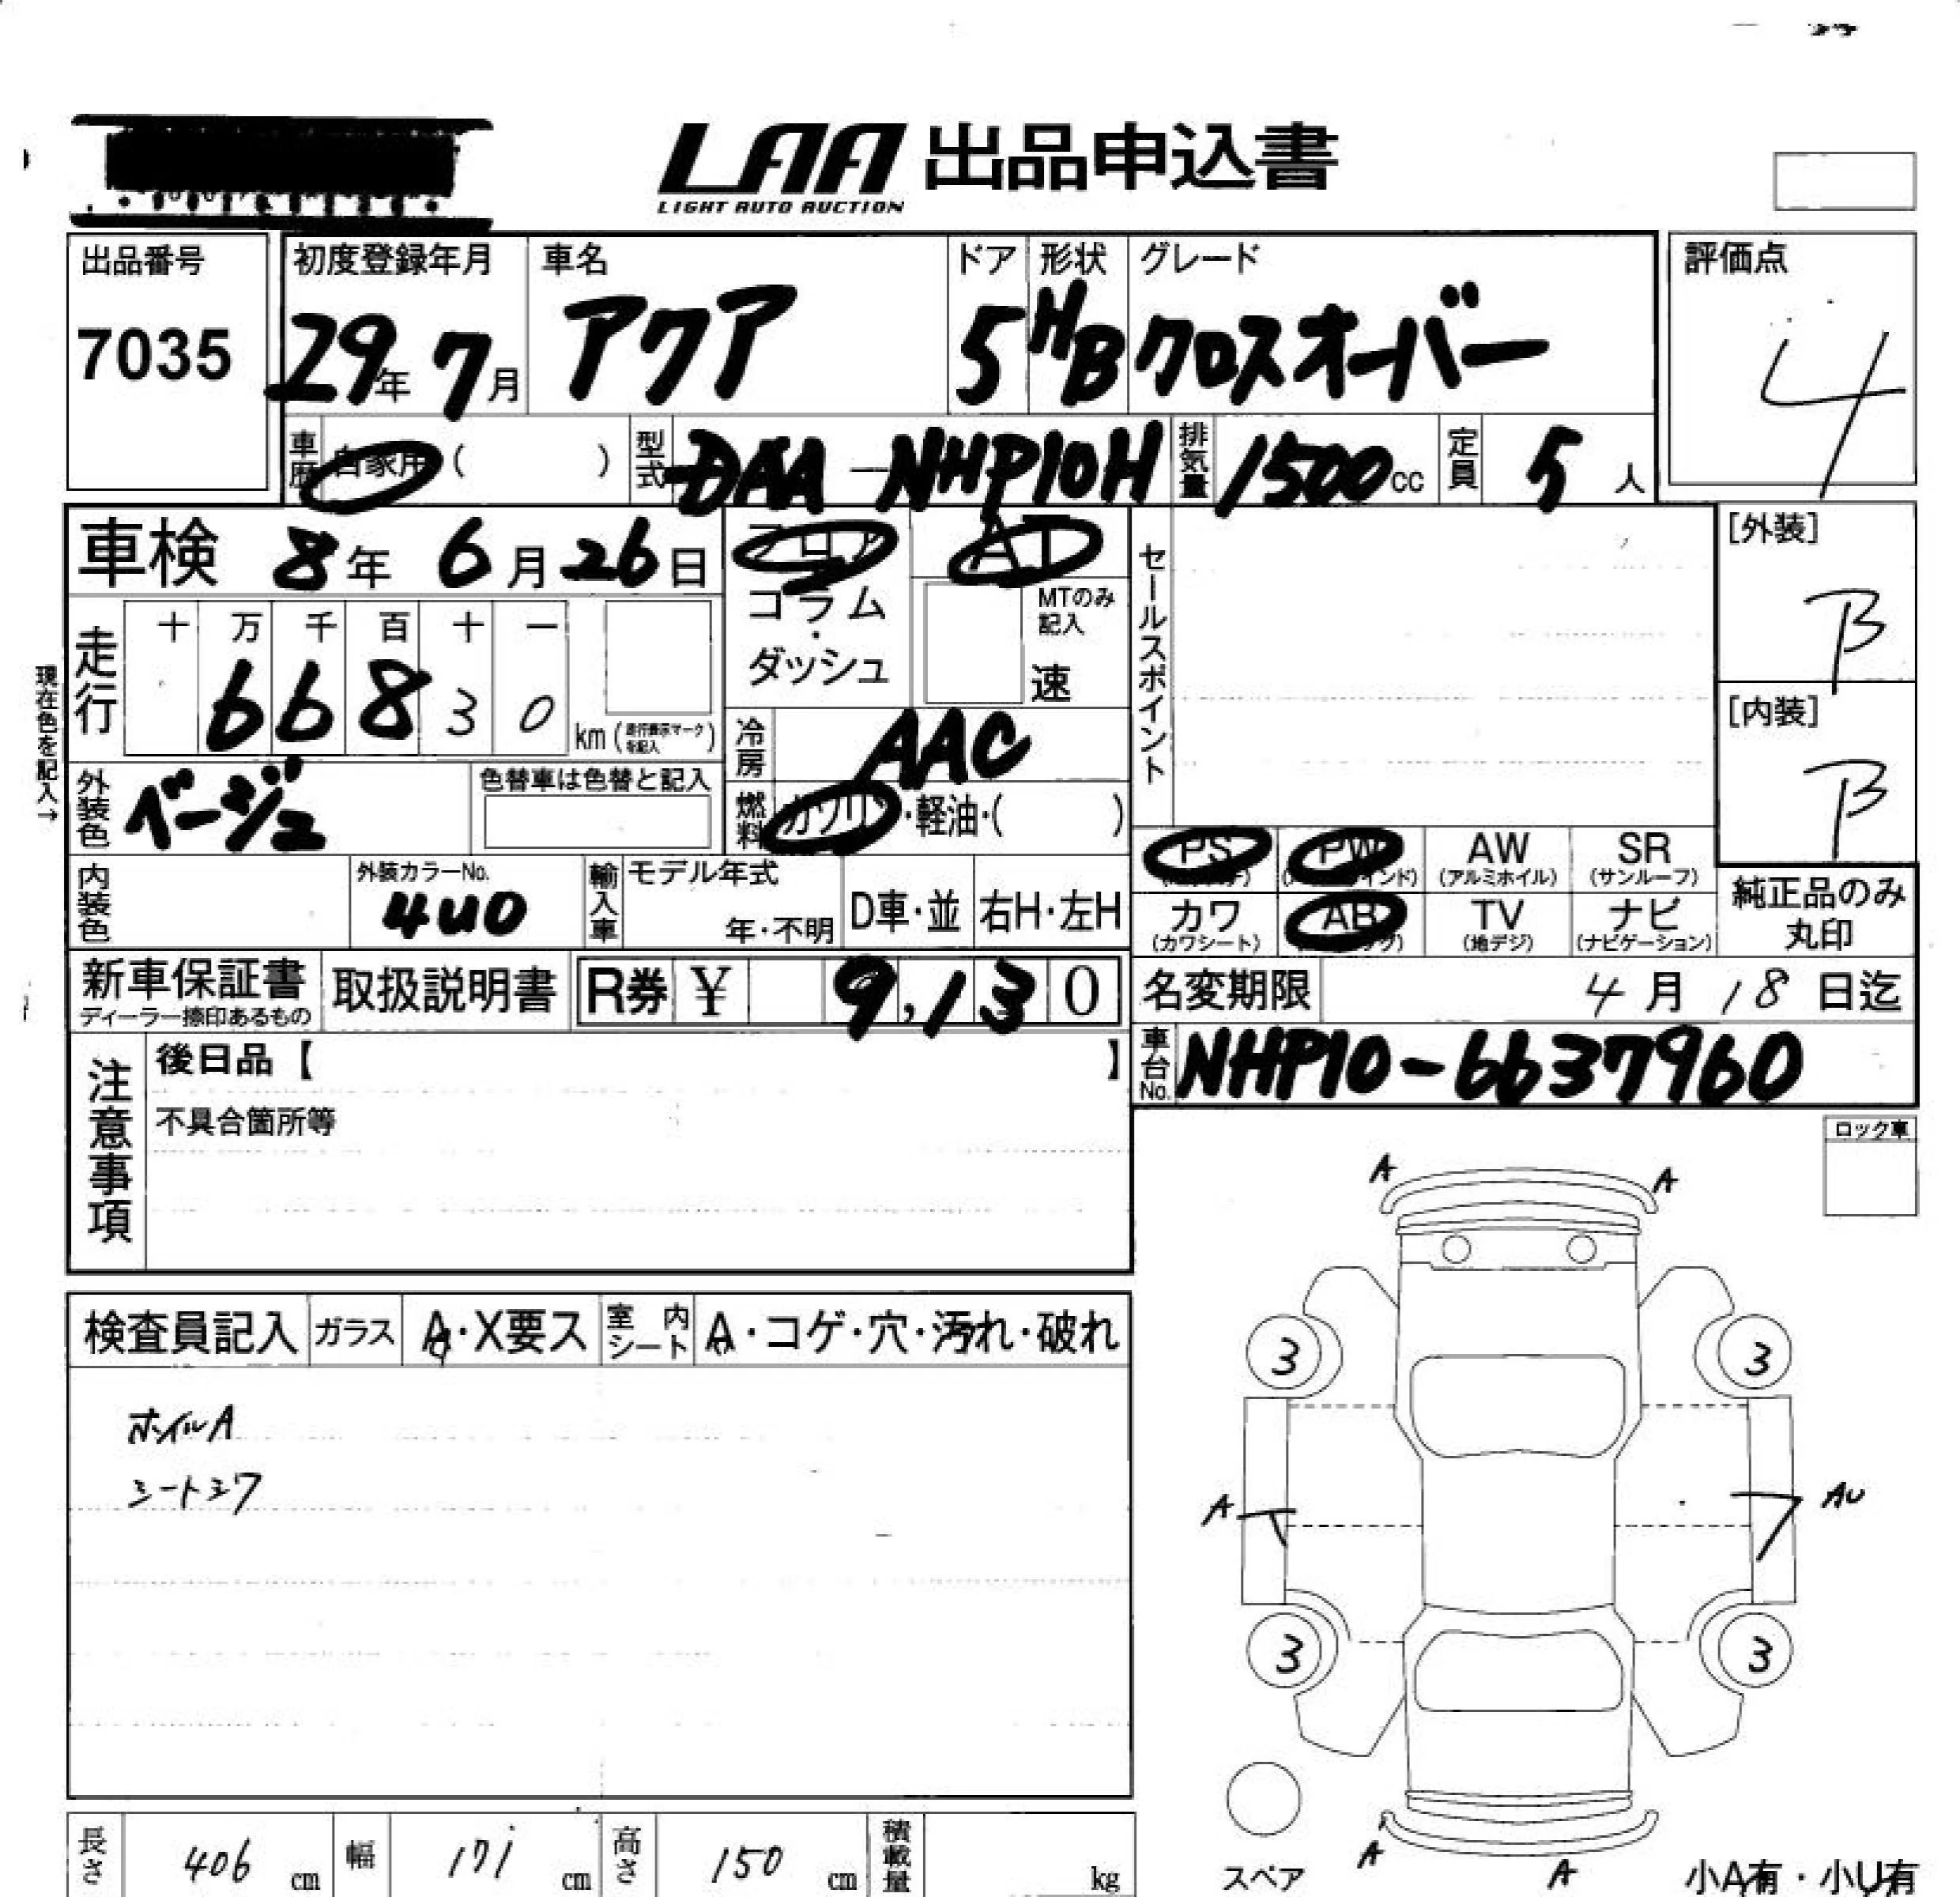 LAA 出品申込書
LIGHT AUTO AUCTION
出品番号
7035
初度登録年月
29年 7月
車名
アクア
ドア
5
形状
HB
グレード
クロスオーバー
評価点
4
車歴 自家用 ( )
型式 DAA-NHP10H
排気量 1500cc
定員 5人
車検 8年 6月 26日
フロア
コラム
・
ダッシュ
AT
MTのみ
記入
速
セールスポイント
[外装]
B
[内装]
B
現在色を記入→
走行
十 万 千 百 十 一
6 6 8 3 0
km(走行表示マークを記入)
冷房 AAC
外装色 ベージュ
色替車は色替と記入
燃料 ガソリン・軽油・( )
PS PW AW SR
(アルミホイル) (サンルーフ)
カワ AB TV ナビ
(カワシート) (地デジ) (ナビゲーション)
純正品のみ
丸印
内装色
外装カラーNo.
4U0
輸入車
モデル年式
年・不明
D車・並
右H・左H
新車保証書
ディーラー捺印あるもの
取扱説明書
R券 ¥ 9,130
名変期限 4月18日迄
車台No. NHP10-6637960
注意事項
後日品【 】
不具合箇所等
ロック車
検査員記入
ガラス A・X要ス
室内シート A・コゲ・穴・汚れ・破れ
ホイルA
シートシワ
A A
3 3
A AU
3 3
A A
スペア
小A有・小U有
長さ 406 cm
幅 171 cm
高さ 150 cm
積載量 kg